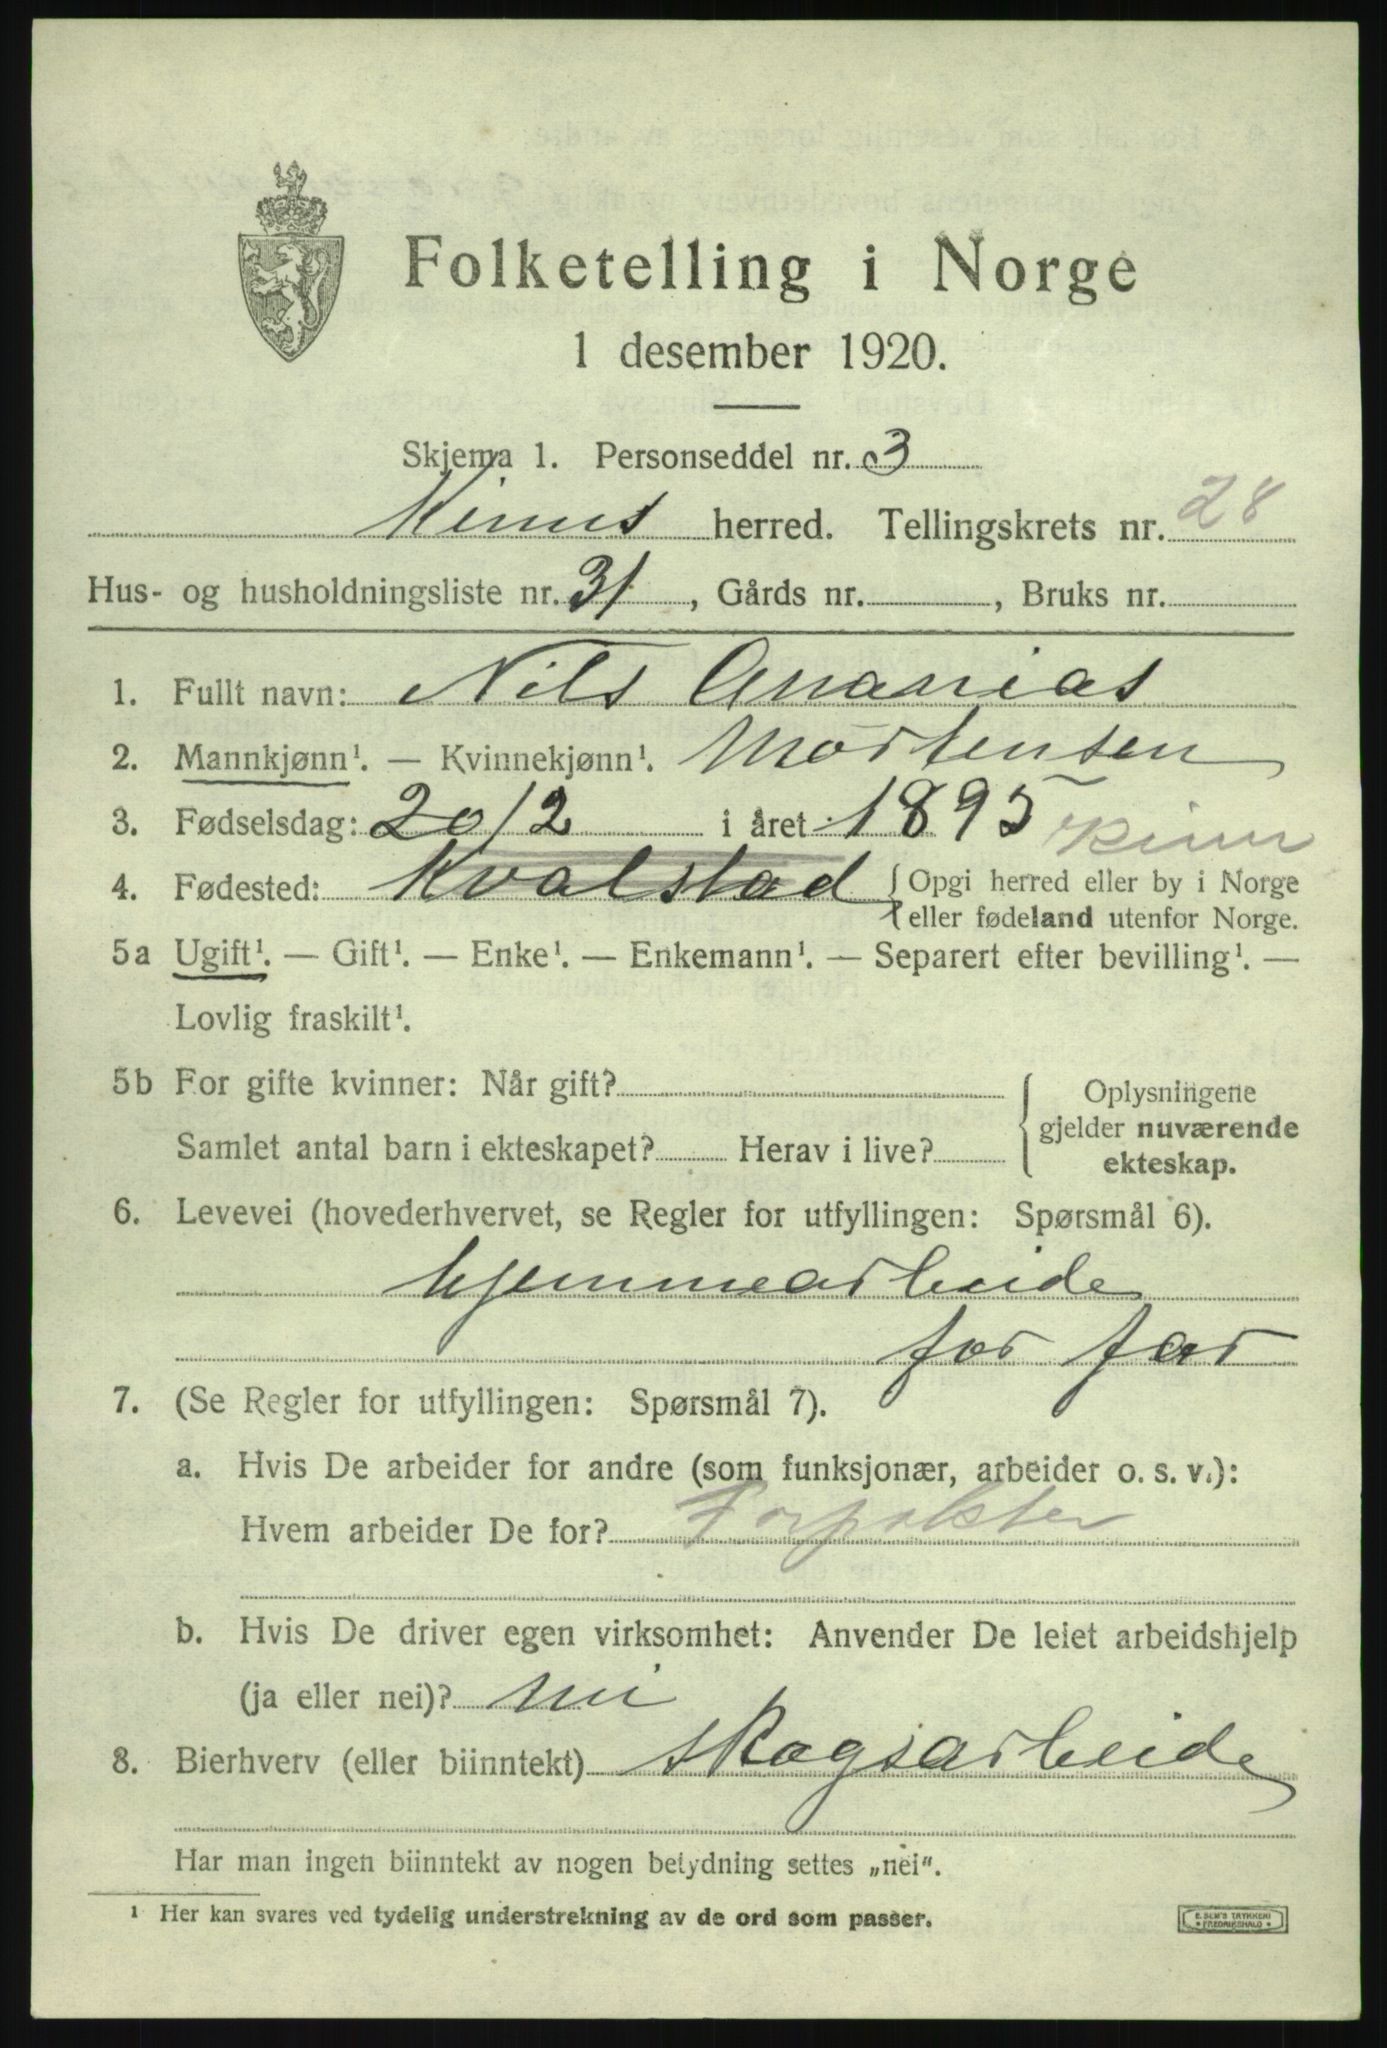 Folketelling i Norge
1 desember 1920.
Skjema 1. Personseddel nr. 3
Kinns herred. Tellingskrets nr. 28
Hus- og husholdningsliste nr. 31, Gårds nr. , Bruks nr.
1. Fullt navn: Nils Ananias
2. Mannkjønn¹. — Kvinnekjønn¹. Mortensen
3. Fødselsdag: 20/2 i året 1895 Kinn
4. Fødested: Kvalstad { Opgi herred eller by i Norge
eller fødeland utenfor Norge.
5a Ugift¹. — Gift¹. — Enke¹. — Enkemann¹. — Separert efter bevilling¹. —
Lovlig fraskilt¹.
5b For gifte kvinner: Når gift? { Oplysningene
gjelder nuværende
Samlet antal barn i ekteskapet? Herav i live? ekteskap.
6. Levevei (hovederhvervet, se Regler for utfyllingen: Spørsmål 6).
hjemmearbeide
for far
7. (Se Regler for utfyllingen: Spørsmål 7).
a. Hvis De arbeider for andre (som funksjonær, arbeider o. s. v.):
Hvem arbeider De for? Forpakter
b. Hvis De driver egen virksomhet: Anvender De leiet arbeidshjelp
(ja eller nei)? nei
8. Bierhverv (eller biinntekt) skogsarbeide
Har man ingen biinntekt av nogen betydning settes „nei".
¹ Her kan svares ved tydelig understrekning av de ord som passer.
E. SEM'S TRYKKERI
FREDRIKSHALD